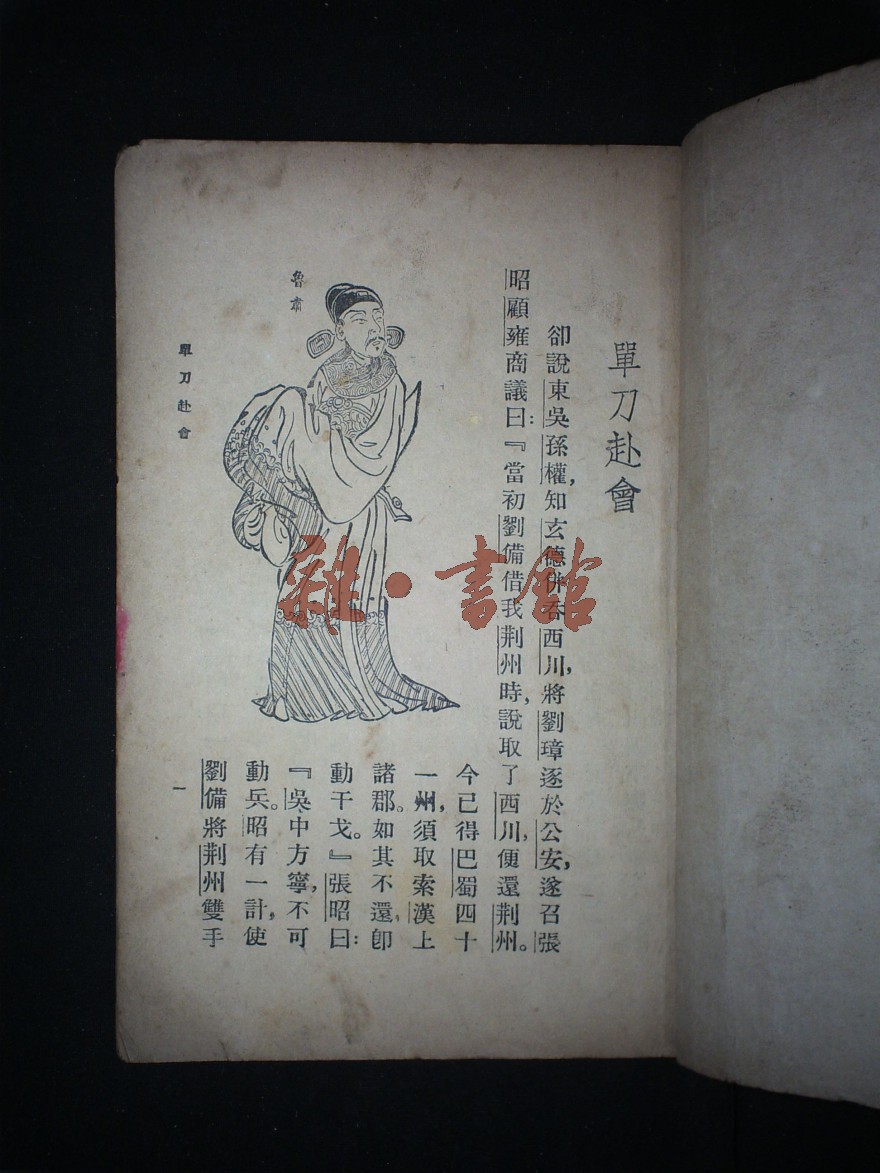 單刀赴會
卻說東吳孫權,知玄德併吞西川,將劉璋逐於公安,遂召張
昭顧雍商議曰:『當初劉備借我荆州時,說取了西川,便還荆州。
今已得巴蜀四十
一州,須取索漢上
諸郡。如其不還,卽
動干戈。』張昭曰:
『吳中方寧,不可
動兵。昭有一計,使
劉備將荆州雙手
魯肅
單刀赴會
一
雜·書館